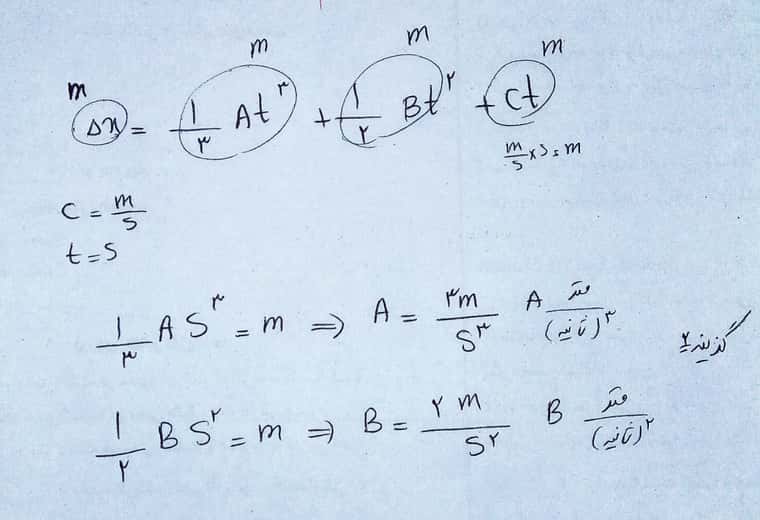 m m m m
Δx = 1/۳ At^۳ + 1/۲ Bt^۲ + Ct
m/s × s = m
C = m/s
t = s
1/۳ A S^۳ = m ⇒ A = ۳m/S^۳ A متر/(ثانیه)^۳
گزینه ۲
1/۲ B S^۲ = m ⇒ B = ۲ m/S^۲ B متر/(ثانیه)^۲